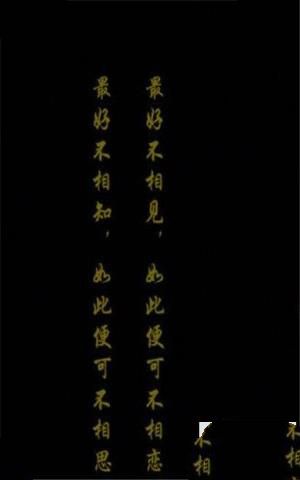 最好不相见，如此便可不相恋
最好不相知，如此便可不相思
不相
不相